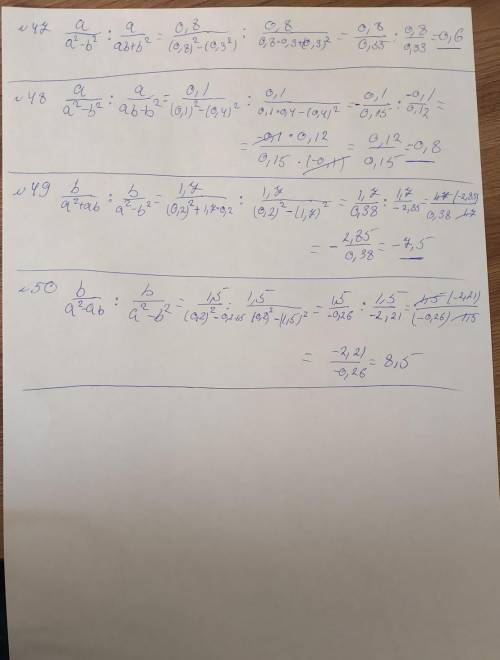 №47 a/(a²-b²) : a/(ab+b²) = 0,8/((0,8)²-(0,3²)) : 0,8/(0,8·0,3+(0,3)²) = 0,8/0,55 : 0,8/0,33 = 0,6
№48 a/(a²-b²) : a/(ab-b²) = 0,1/((0,1)²-(0,4)²) : 0,1/(0,1·0,4-(0,4)²) = -0,1/0,15 : -0,1/0,12 =
= -0,1·0,12/0,15·(-0,1) = 0,12/0,15 = 0,8
№49 b/(a²+ab) : b/(a²-b²) = 1,7/((0,2)²+1,7·0,2) : 1,7/((0,2)²-(1,7)²) = 1,7/0,38 : 1,7/-2,85 = 1,7(-2,85)/0,38·1,7
= -2,85/0,38 = -7,5
№50 b/(a²-ab) : b/(a²-b²) = 1,5/((0,2)²-0,2·1,5) : 1,5/((0,2)²-(1,5)²) = 1,5/-0,26 : 1,5/-2,21 = 1,5(-2,21)/(-0,26)·1,5
= -2,21/-0,26 = 8,5